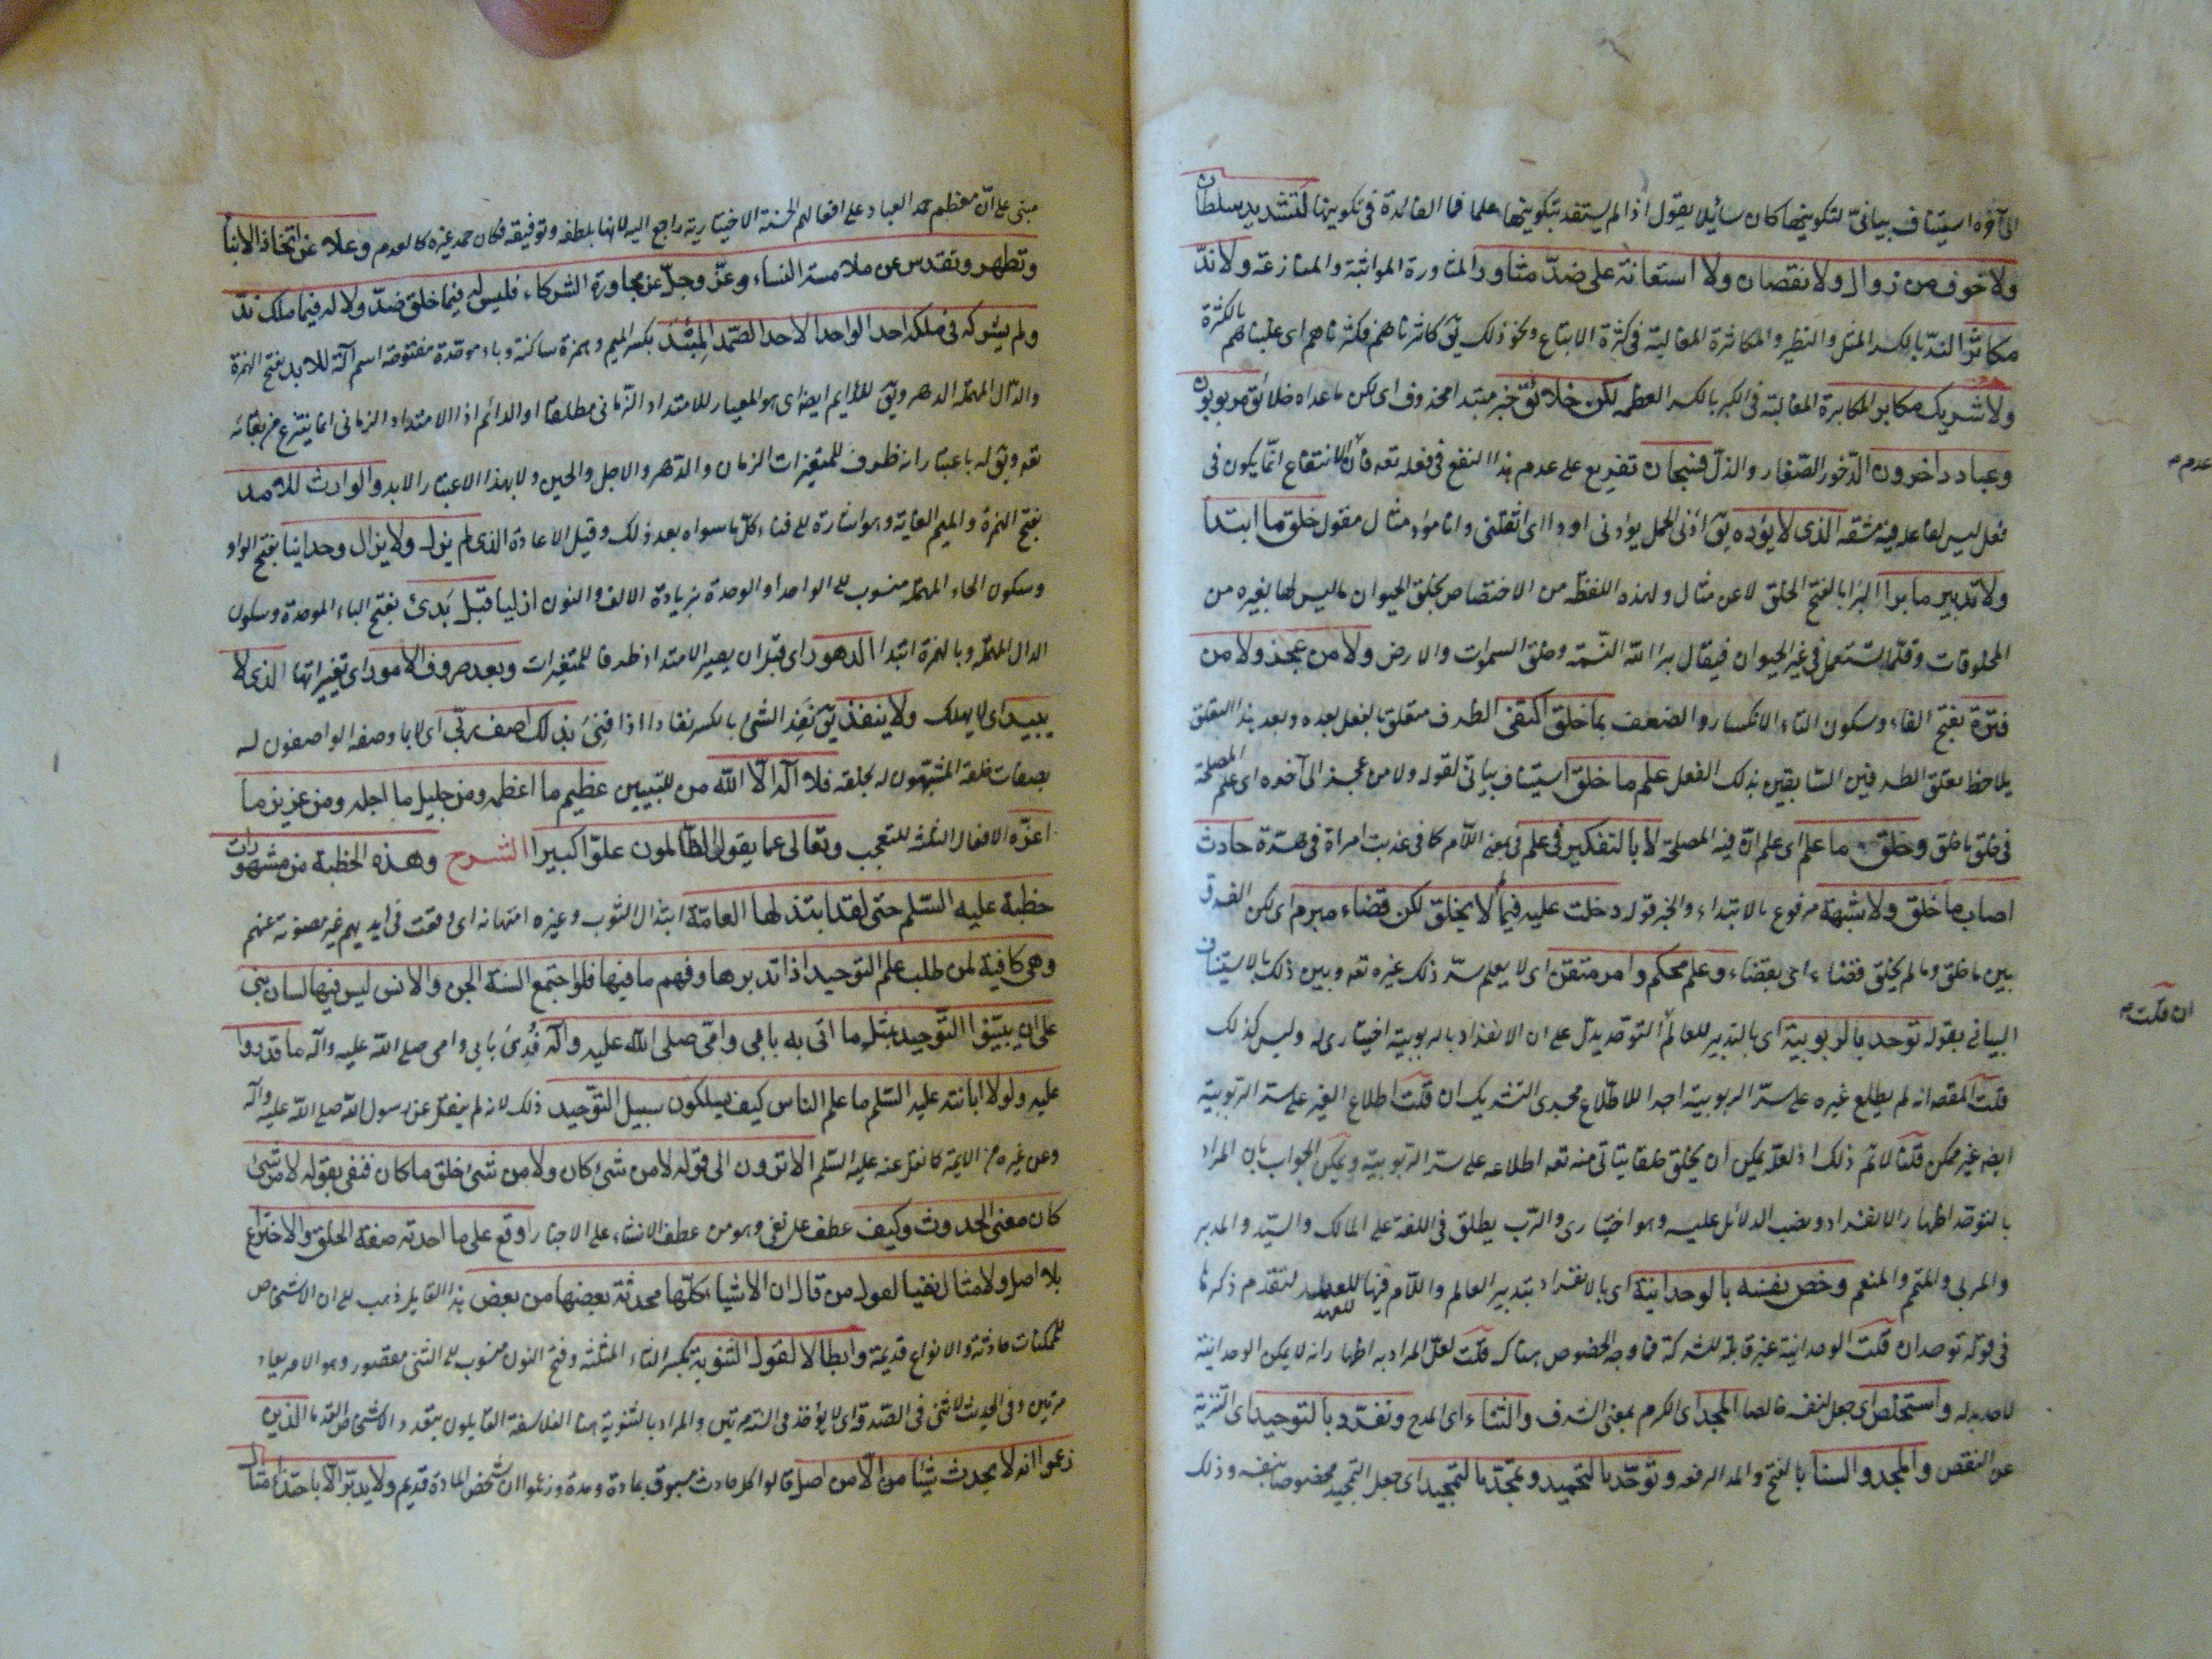 الى آخره استيناف بيانيّ لتكوينها كان سائلا يقول اذا لم يستفد بتكوينها علما فما الفائدة فى تكوينها لتشديد سلطان
ولا خوف من زوال ولا نقصان ولا استعانة على ضدّ مثاور المثاورة المواثبة والمنازعة ولا ندّ
مكاثر الندّ بالكسر المثل والنظير والمكاثرة المغالبة فى كثرة الاتباع ونحو ذلك يق كاثرناهم فكثرناهم اى غلبناهم بالكثرة
ولا شريك مكابر المكابرة المغالبة فى الكبر بالكسر العظمة لكن خلائق خبر مبتدا محذوف اى لكن ما عداه خلائق مربوبون
وعباد داخرون الدخور الصّغار والذلّ فسبحان تفريع على عدم هذا النفع فى فعله تعه فان الانتفاع انّما يكون فى
عدم
فعل ليس لفاعله فيه مشقة الذى لا يؤده يق آدنى الحمل يؤدنى اودا اى اثقلنى وانا مؤد مثال مقول خلق ما ابتدا
ولا تدبير ما برا البرا بالفتح الخلق لا عن مثال ولهذه اللفظة من الاختصاص بخلق الحيوان ما ليس لها بغيره من
المخلوقات وقلّما يستعمل فى غير الحيوان فيقال برا الله النسمة وخلق السموات والارض ولا من عجز ولا من
فترة بفتح الفاء وسكون التاء الانكسار والضعف بما خلق اكتفى الظرف متعلق بالفعل بعده وبعد هذا التعلق
يلاحظ تعلق الظرفين السابقين بذلك الفعل علم ما خلق استيناف بيانى لقوله ولا من عجز الى آخره اى علم المصلحة
فى خلق ما خلق وخلق ما علم اى علم انّ فيه المصلحة لا بالتفكير فى علم فى بمعنى اللام كما فى عذبت امراة فى هرّة حادث
اصاب ما خلق ولا شبهة مرفوع بالابتداء والخبر قوله دخلت عليه فيما لا يخلق لكن قضاء مبرم اى لكن الفرق
بين ما خلق وما لم يخلق قضاء اى بقضاء وعلم محكم وامر متقن اى لا يعلم سرّ ذلك غيره تعه وبين ذلك بالاستيناف
البيانى بقوله توحد بالربوبية اى بالتدبير للعالم التوحّد يدلّ على ان الانفراد بالربوبية اختيارى له وليس كذلك
ان قلت
قلت المقصد انه لم يطلع غيره على سرّ الربوبية اجرا للاطلاع مجرى التشريك ان قلت اطلاع الغير على سرّ الربوبية
ايضه غير ممكن قلنا لا نم ذلك اذ لعلّه يمكن ان يخلق خلقا يتاتى منه تعه اطلاعه على سرّ الربوبية ويمكن الجواب بان المراد
بالتوحّد اظهار الانفراد ونصب الدلائل عليه وهو اختيارى والربّ يطلق فى اللغة على المالك والسيّد والمدبر
والمربى والمتمم والمنعم وخصّ نفسه بالوحدانية اى بالانفراد بتدبير العالم واللام فيها للعهد لتقدم ذكرها
للعهد
فى قوله توحد ان قلت الوحدانية غير قابلة للشركة فما وجه الخصوص هناك قلت لعلّ المراد به اظهار انه لا يمكن الوحدانية
لاحد بدله واستخلص اى جعل لنفسه خالصا المجد اى الكرم بمعنى الشرف والثناء اى المدح وتفرّد بالتوحيد اى التنزيه
عن النقص والمجد والسنا بالفتح والمد الرفعة وتوحّد بالتحميد وتمجّد بالتمجيد اى جعل التمجيد مخصوصا بنفسه وذلك
مبنى على انّ معظم حمد العباد على افعالهم الحسنة الاختيارية راجع اليه لانها بلطفه وتوفيقه فكان حمد غيره كالعدم وعلا عن اتخاذ الابناء
وتطهر وتقدس عن ملامسة النساء وعزّ وجلّ عن مجاورة الشركاء فليس له فيما خلق ضدّ ولا له فيما ملك ندّ
ولم يشركه فى ملكه احد الواحد الاحد الصّمد المئبد بكسر الميم وهمزة ساكنة وباء موحدة مفتوحة اسم آلة للابد بفتح الهمزة
والدال المهملة الدهر ويق للدايم ايضا اى هو المعيار للامتداد الزمانى مطلقا او الدائم اذ الامتداد الزمانى انما ينتزع من بقائه
تعه ويق له باعتبار انه ظرف للمتغيرات الزمان والدهر والاجل والحين ولا بهذا الاعتبار الابد والوارث للامد
بفتح الهمزة والميم الغاية وهو اشارة الى فناء كلّ ما سواه بعد ذلك وقيل الاعادة الذى لم يزل ولا يزال وحدانيا بفتح الواو
وسكون الحاء المهملة منسوب الى الواحد او الوحدة بزيادة الالف والنون ازليا قبل بدئ بفتح الباء الموحدة وسكون
الدال المهملة وبالهمزة ابتدا الدهور اى قبل ان يصير الامتداد ظرفا للمتغيرات وبعد صروف الامور اى تغييراتها الذى لا
يبيد اى لا يهلك ولا ينفد يق نفد الشئ بالكسر نفادا اذا فنى بذلك اصف ربّى اى لا بما وصفه الواصفون له
بصفات خلقه المشبّهون له بخلقه فلا اله الا الله من للتبيين عظيم ما اعظمه ومن جليل ما اجله ومن عزيز ما
اعزّه الافعال الثلثة للتعجب وتعالى عما يقول الظالمون علوّا كبيرا الشرح وهذه الخطبة من مشهورات
خطبه عليه السّلم حتى لقد ابتذلها العامّة ابتذال الثوب وغيره امتهانه اى وقعت فى ايديهم غير مصونة عنهم
وهى كافية لمن طلب علم التوحيد اذا تدبرها وفهم ما فيها فلو اجتمع السنة الجن والانس ليس فيها لسان نبى
على ان يبيّنوا التّوحيد بمثل ما اتى به بابى وامّى صلى الله عليه وآله فُدى بابى وامى صلى الله عليه وآله ما قدروا
عليه ولولا ابانته عليه السّلم ما علم الناس كيف يسلكون سبيل التوحيد ذلك لانه لم ينقل عن رسول الله صلى الله عليه وآله
وعن غيره من الايمة كما نقل عنه عليه السّلم الا ترون الى قوله لا من شئ كان ولا من شئ خلق ما كان فنفى بقوله لا من شئ
كان معنى الحدوث وكيف عطف على نفى وهو من عطف الانشاء على الاخبار اوقع على ما احدثه صفة الخلق والاختراع
بلا اصل ولا مثال نفيا لقول من قال ان الاشياء كلّها محدثة بعضها من بعض هذا القايل ذهب الى ان الاشخاص
للممكنات حادثة والانواع قديمة وابطالا لقول الثنوية بكسر الثاء المثلثة وفتح النون منسوب الى الثنى مقصور وهو الامر يعاد
مرتين وفى الحديث لا ثنى فى الصّدقة اى لا يؤخذ فى السّنة مرتين والمراد بالثنوية هنا الفلاسفة القايلون بتعدد الاشخاص القدما الذين
زعموا انه لا يحدث شيئا من الّا من اصل قالوا كل حادث مسبوق بمادة ومدة وزعموا ان شخص المادة قديم ولا يدبّر الّا باحتذاء مثال